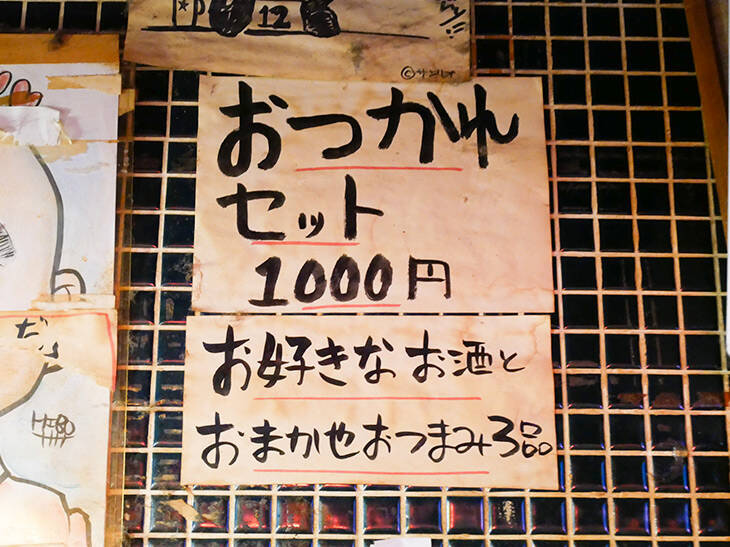 12
©サンレイ
おつかれ
セット
1000円
お好きなお酒と
おまかせおつまみ3品
だ